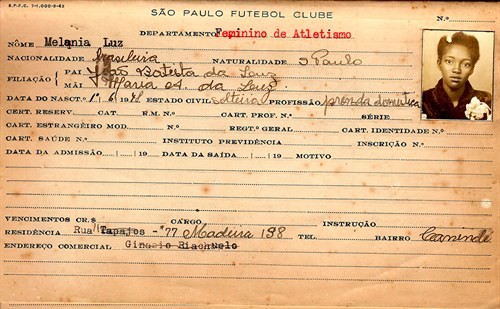 S.P.F.C. 7-1.000-9-43
SÃO PAULO FUTEBOL CLUBE
N.º
DEPARTAMENTO Feminino de Atletismo
NOME Melania Luz
NACIONALIDADE brasileira NATURALIDADE S Paulo
FILIAÇÃO PAI João Batista da Luz
MÃI Maria A. da Luz
DATA DO NASCT.º 1- 6 19 ESTADO CIVIL solteira PROFISSÃO prenda domestica
CERT. RESERV. CAT. R.M. CART. PROF. N.º SÉRIE
CART. ESTRANGEIRO MOD. REGT.º GERAL CART. IDENTIDADE N.º
CART. SAÚDE N.º INSTITUTO PREVIDÊNCIA INSCRIÇÃO N.º
DATA DA ADMISSÃO / / 19 DATA DA SAÍDA / / 19 MOTIVO
VENCIMENTOS CR.$ CARGO INSTRUÇÃO
RESIDÊNCIA Rua Tapajos - 77 Madeira 198 TEL. BAIRRO Canindé
ENDEREÇO COMERCIAL Ginasio Riachuelo